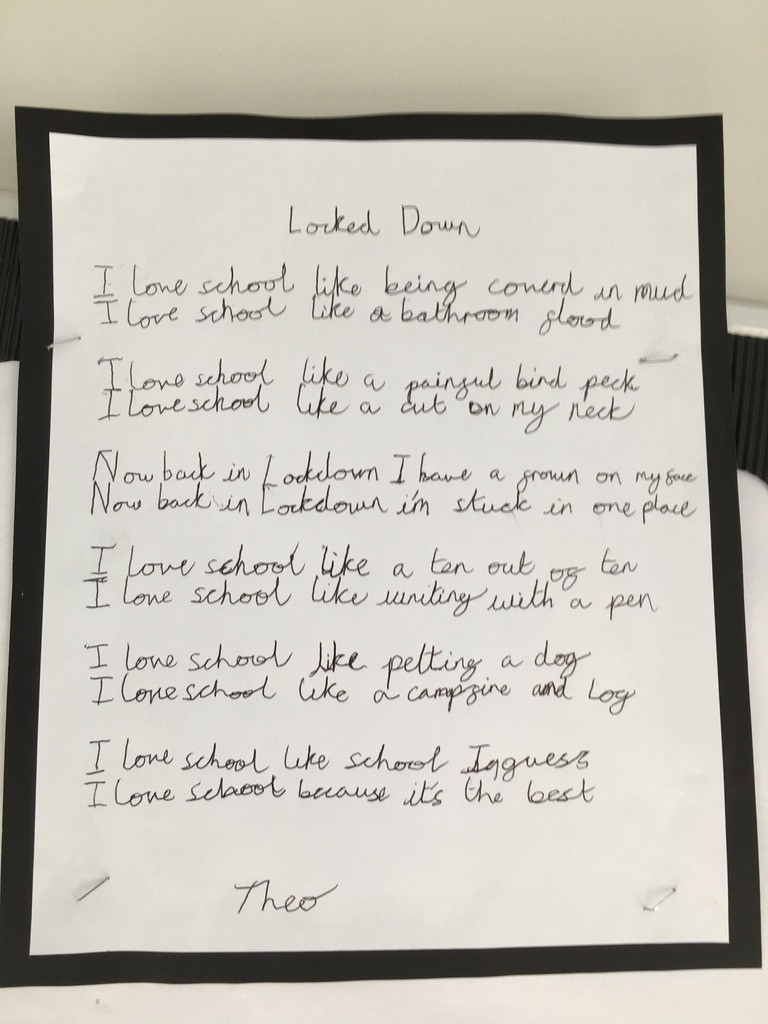 Locked Down
I love school like being coverd in mud
I love school like a bathroom flood
I love school like a painful bird peck
I love school like a cut on my neck
Now back in Lockdown I have a frown on my face
Now back in Lockdown i'm stuck in one place
I love school like a ten out of ten
I love school like writing with a pen
I love school like petting a dog
I love school like a campfire and log
I love school like school I guess
I love school because it's the best
Theo